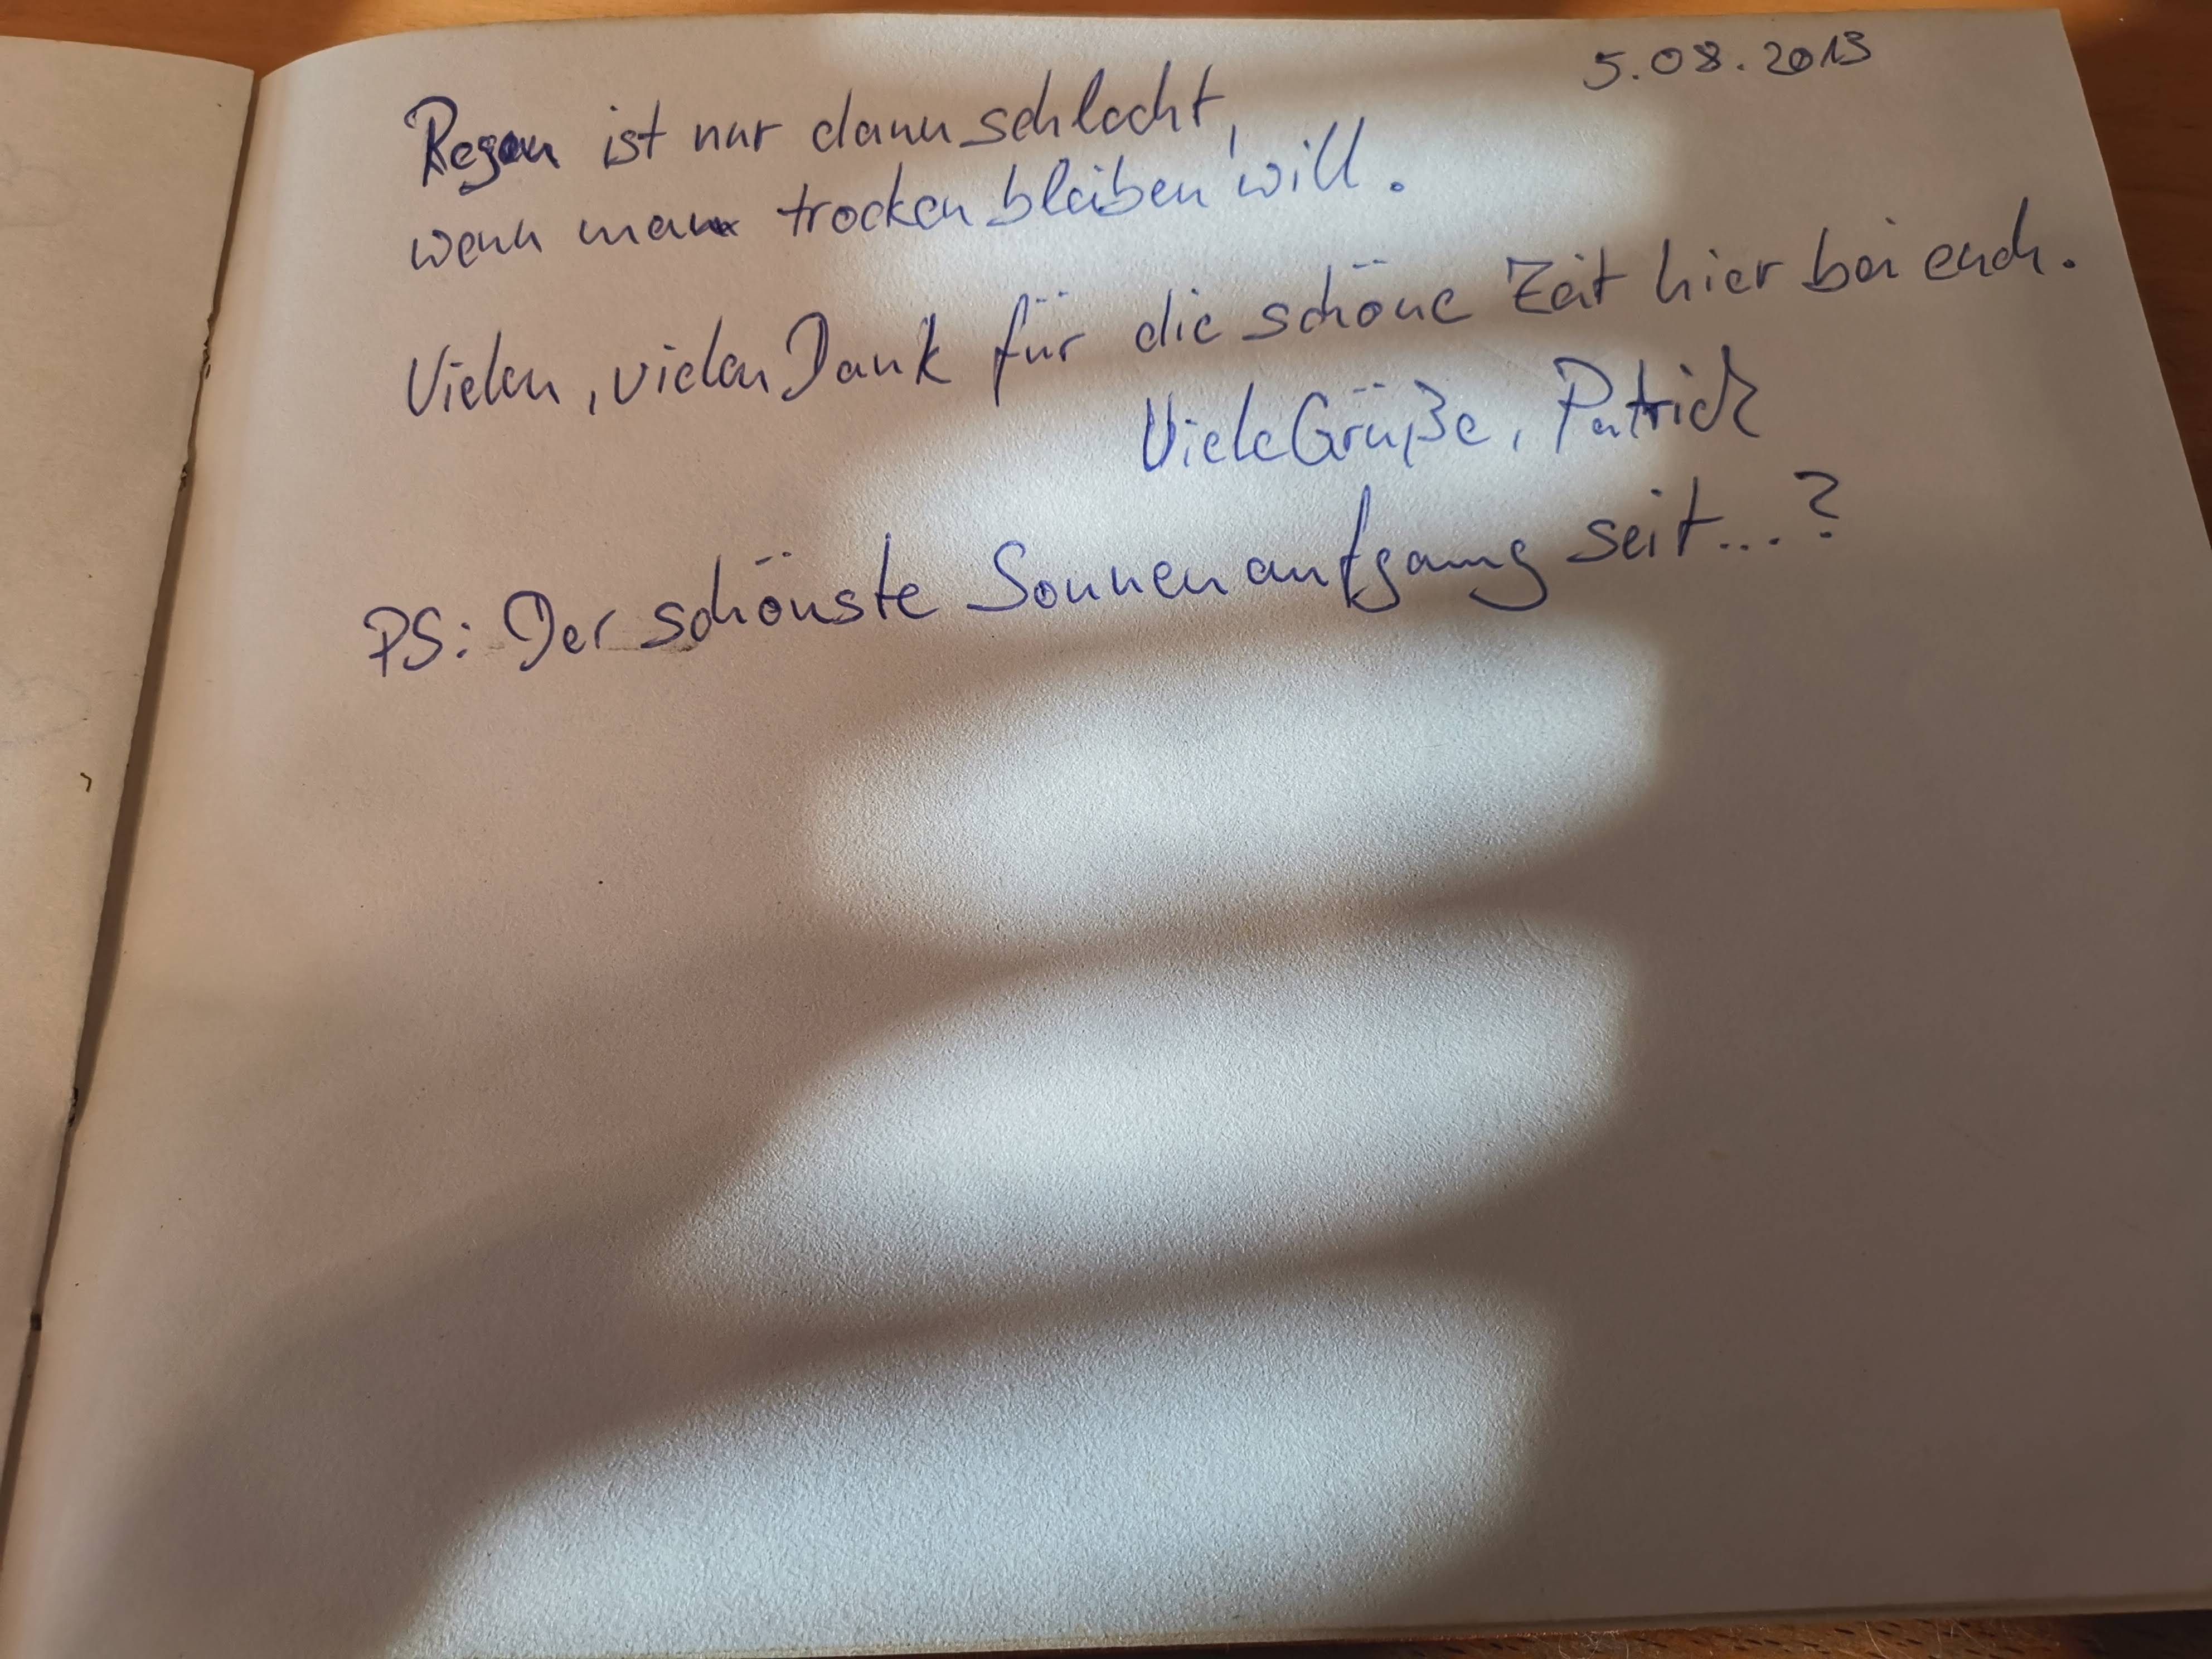 5.08.2013
Regen ist nur dann schlecht,
wenn man trocken bleiben will.
Vielen, vielen Dank für die schöne Zeit hier bei euch.
Viele Grüße, Patrick
PS: Der schönste Sonnenaufgang seit...?